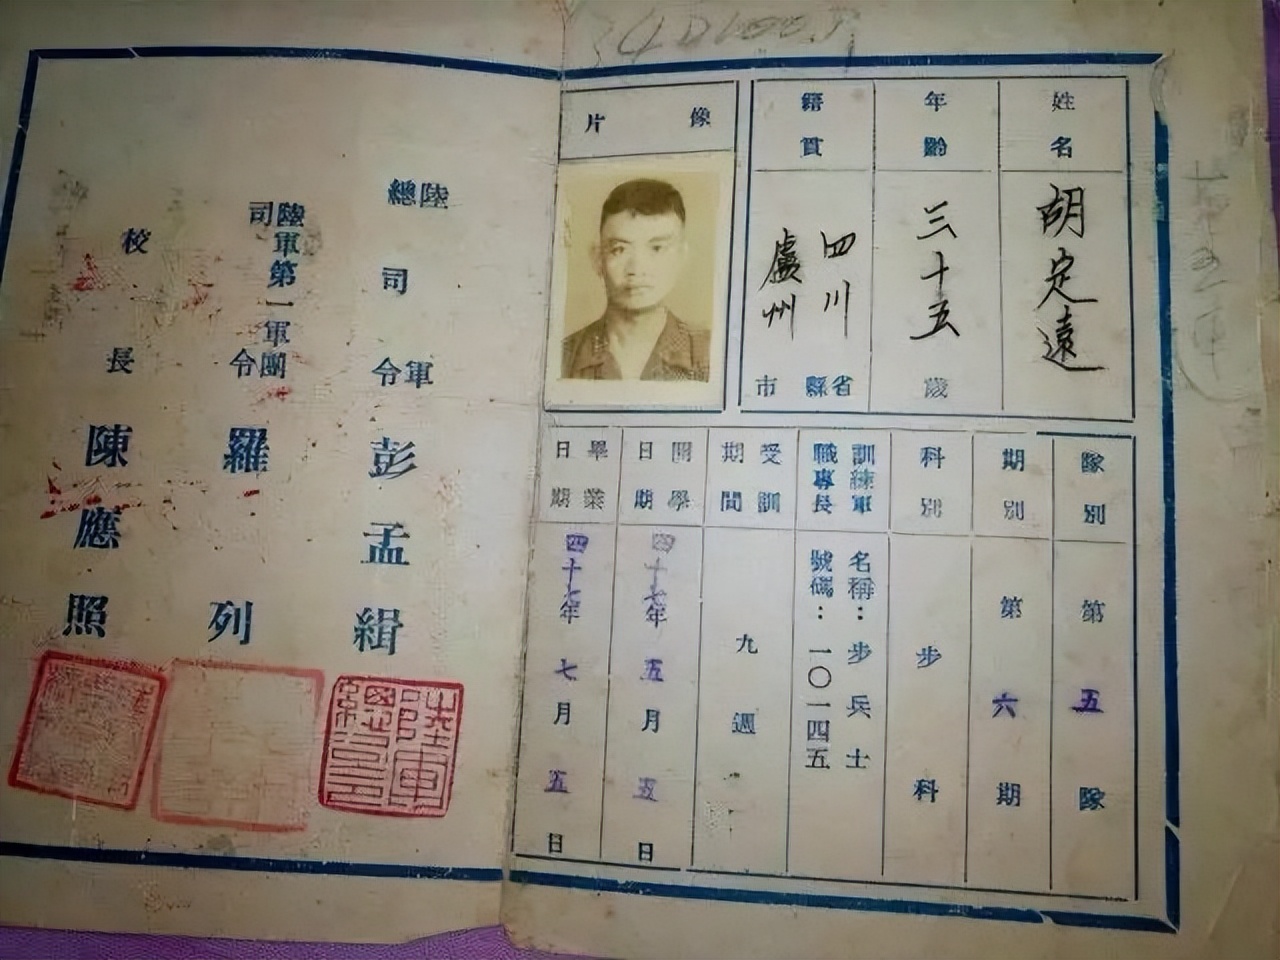 姓名
胡定遠
年齡
三十五
歲
籍貫
四川
省
盧州
縣市
像片
隊別
第五隊
期別
第六期
科別
步科
訓練軍職專長
名稱：步兵士
號碼：一〇一四五
受訓期間
九週
開學日期
四十七年五月五日
畢業日期
四十七年七月五日
陸軍總司令
彭孟緝
陸軍第一軍團司令
羅列
校長
陳應照